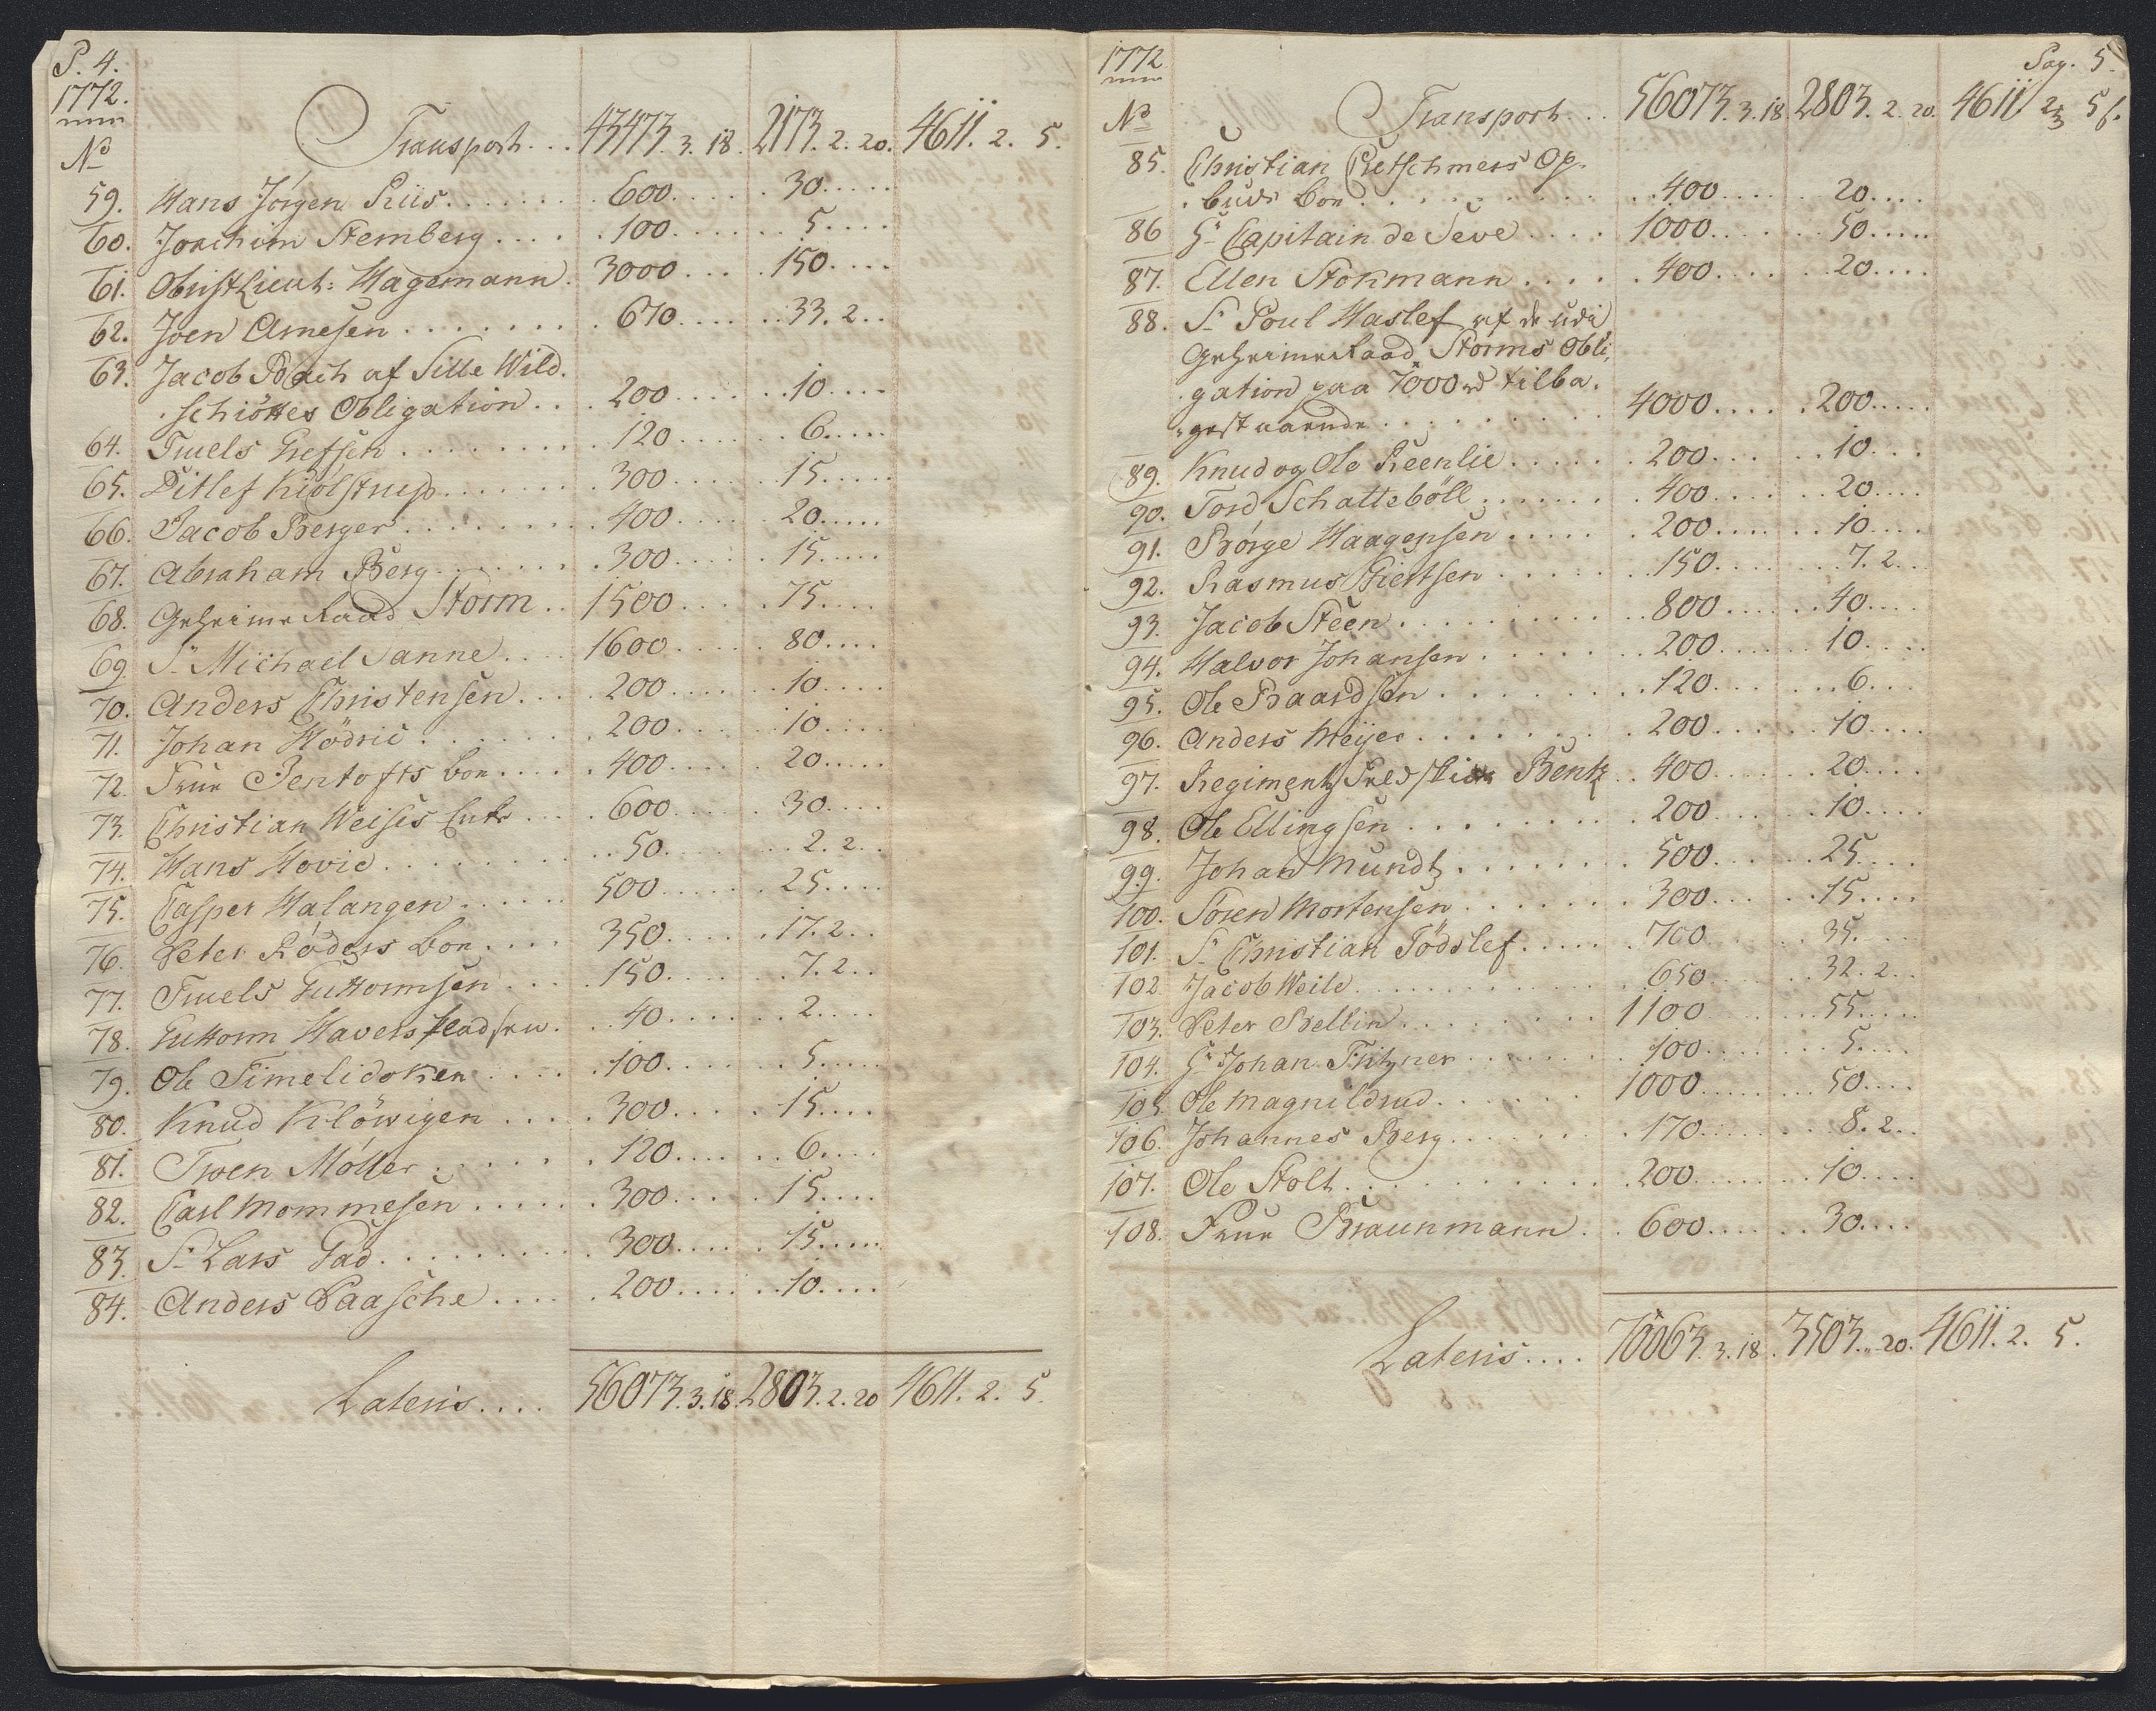 P. 4.
1772.
No
Transport... 43473. 3. 18. 2173. 2. 20. 4611. 2. 5.
59. Hans Jörgen Riis....... 600..... 30.....
60. Joachim Stemberg.... 100...... 5....
61. ObristLieut: Hagemann. 3000.... 150....
62. Joen Arnesen........ 670..... 33. 2..
63. Jacob Bach af Sille Wild.
schiöttes Obligation... 200..... 10....
64. Truels Grefsen......... 120...... 6.....
65. Ditlef Kiölstrup....... 300..... 15.....
66. Jacob Berger......... 400..... 20.....
67. Abraham Berg........ 300..... 15.....
68. Geheime Raad Storm.. 1500..... 75....
69. Sr. Michael Sanne.... 1600..... 80....
70. Anders Christensen... 200...... 10....
71. Johan Hödric....... 200...... 10....
72. Frue Jentofts boe..... 400..... 20.....
73. Christian Weises Enke.... 600..... 30....
74. Hans Hovie......... 50...... 2. 2..
75. Casper Halangen...... 500...... 25....
76. Peter Röders boe.... 350...... 17. 2..
77. Truels Guttormsen... 150...... 7. 2..
78. Guttorm Haverstadsen. 40...... 2....
79. Ole Timelidoken..... 100...... 5.....
80. Knud Klöwigen..... 300..... 15....
81. Swen Möller...... 120..... 6....
82. Carl Mommesen...... 300..... 15....
83. Sr. Lars Gad......... 300..... 15.....
84. Anders Paasche..... 200..... 10....
Lateris.... 56073. 3. 18. 2803. 2. 20 4611. 2. 5.
1772
Pag. 5.
No
Transport... 56073. 3. 18 2803. 2. 20. 4611 2 5
85. Christian Cretschmers Op-
buds boe.......... 400..... 20....
86 Hr. Capitain de Seve.... 1000...... 50.....
87. Ellen Stokmann..... 400...... 20....
88. Sr. Poul Haslef af de udi
Geheime Raad Storms Obli,
gation paa 7000 rd tilba,
gestaaende........ 4000..... 200.....
89. Knud og Ole Reenlie..... 200..... 10....
90. Tord Schatteböll....... 400...... 20....
91. Börge Haagensen..... 200...... 10....
92. Rasmus Giertsen...... 150....... 7. 2..
93. Jacob Steen.......... 800...... 40....
94. Halvor Johansen....... 200...... 10....
95. Ole Baardsen........ 120...... 6...
96. Anders Meijer........ 200...... 10....
97. Regiments Feldskier Bentz.. 400...... 20....
98. Ole Ellingsen......... 200...... 10....
99. Johan Mundt....... 500...... 25....
100. Sören Mortensen....... 300...... 15....
101. Sr. Christian Tödslef..... 700 35.
102 Jacob Weile........... 650...... 32. 2..
103. Peter Bellin......... 1100....... 55.....
104. Hr. Johan Fitzner....... 100....... 5....
105. Ole Magnildrud...... 1000....... 50....
106. Johannes Berg....... 170....... 8. 2..
107. Ole Stolt........... 200....... 10....
108. Frue Braunmann.. 600...... 30....
Lateris.... 70063. 3. 18. 3503. „ 20. 4611. 2. 5.